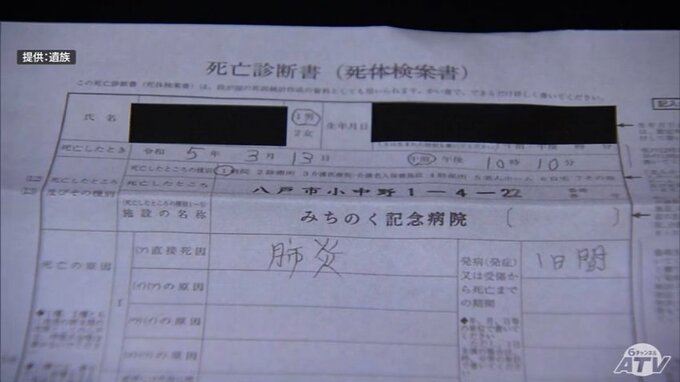 提供：遺族
死亡診断書（死体検案書）
この死亡診断書（死体検案書）は、我が国の死因統計作成の資料としても用いられます。かい書で、できるだけ詳しく書いてください。
記入
氏名
1男
2女
生年月日
午前 午後 時 分
死亡したとき 令和 5 年 3 月 13 日 午前 午後 10 時 10 分
死亡したところの種別 1病院 2診療所 3介護医療院・介護老人保健施設 4助産所 5老人ホーム 6自宅 7その他
死亡したところ
及びその種別
八戸市小中野1-4-22
(死亡したところの種別1~5)
施設の名称
みちのく記念病院
死亡の原因
I
(ア)直接死因
肺炎
発病(発症)
又は受傷か
ら死亡まで
の期間
1日間
(イ)(ア)の原因
(ウ)(イ)の原因
(エ)(ウ)の原因
6チャンネル
ATV